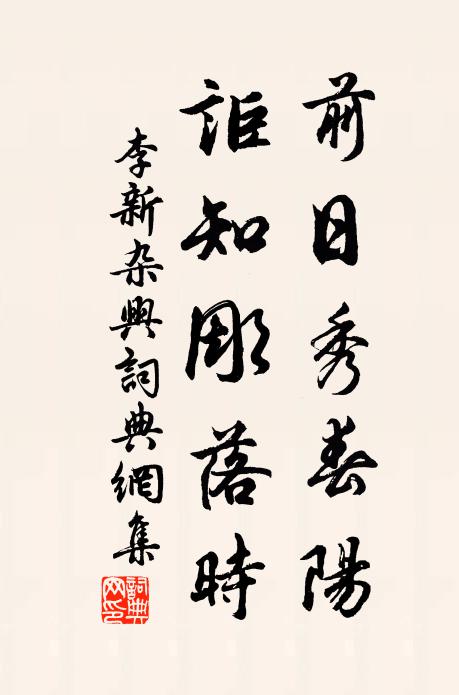 前日秀春陽
詎知彫落時
李新杂興詞典網集
詞典網印